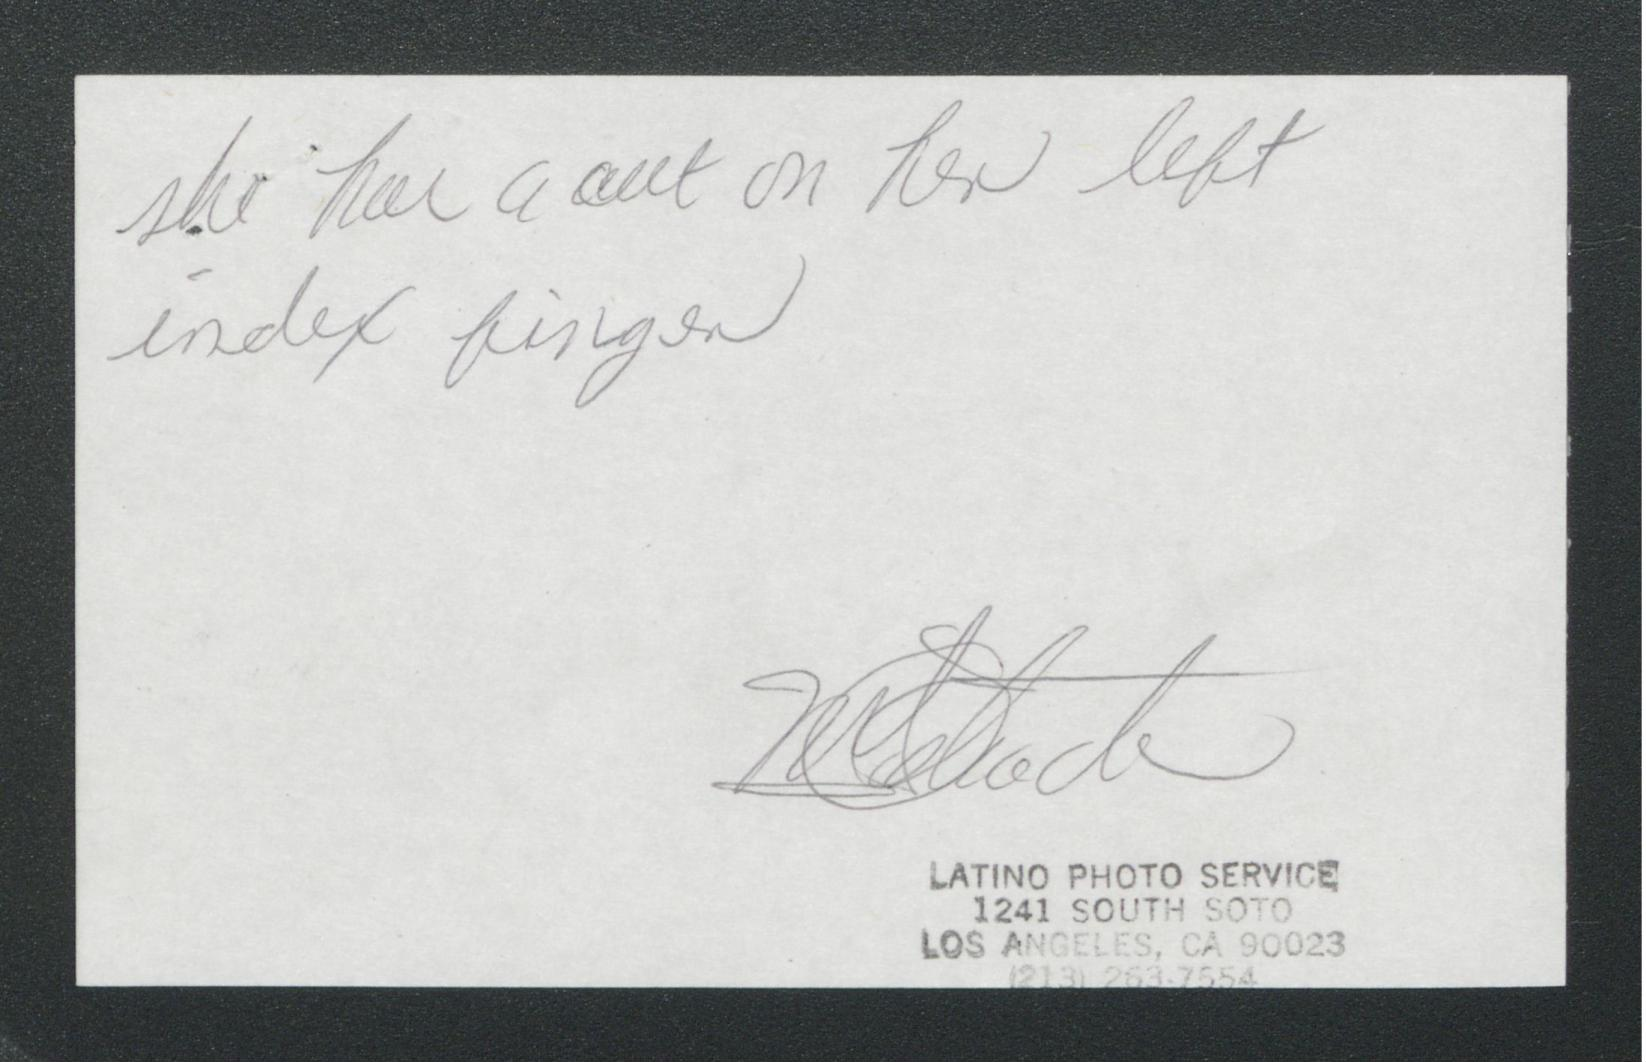 she has a cut on her left
index finger
LATINO PHOTO SERVICE
1241 SOUTH SOTO
LOS ANGELES, CA 90023
(213) 263-7554